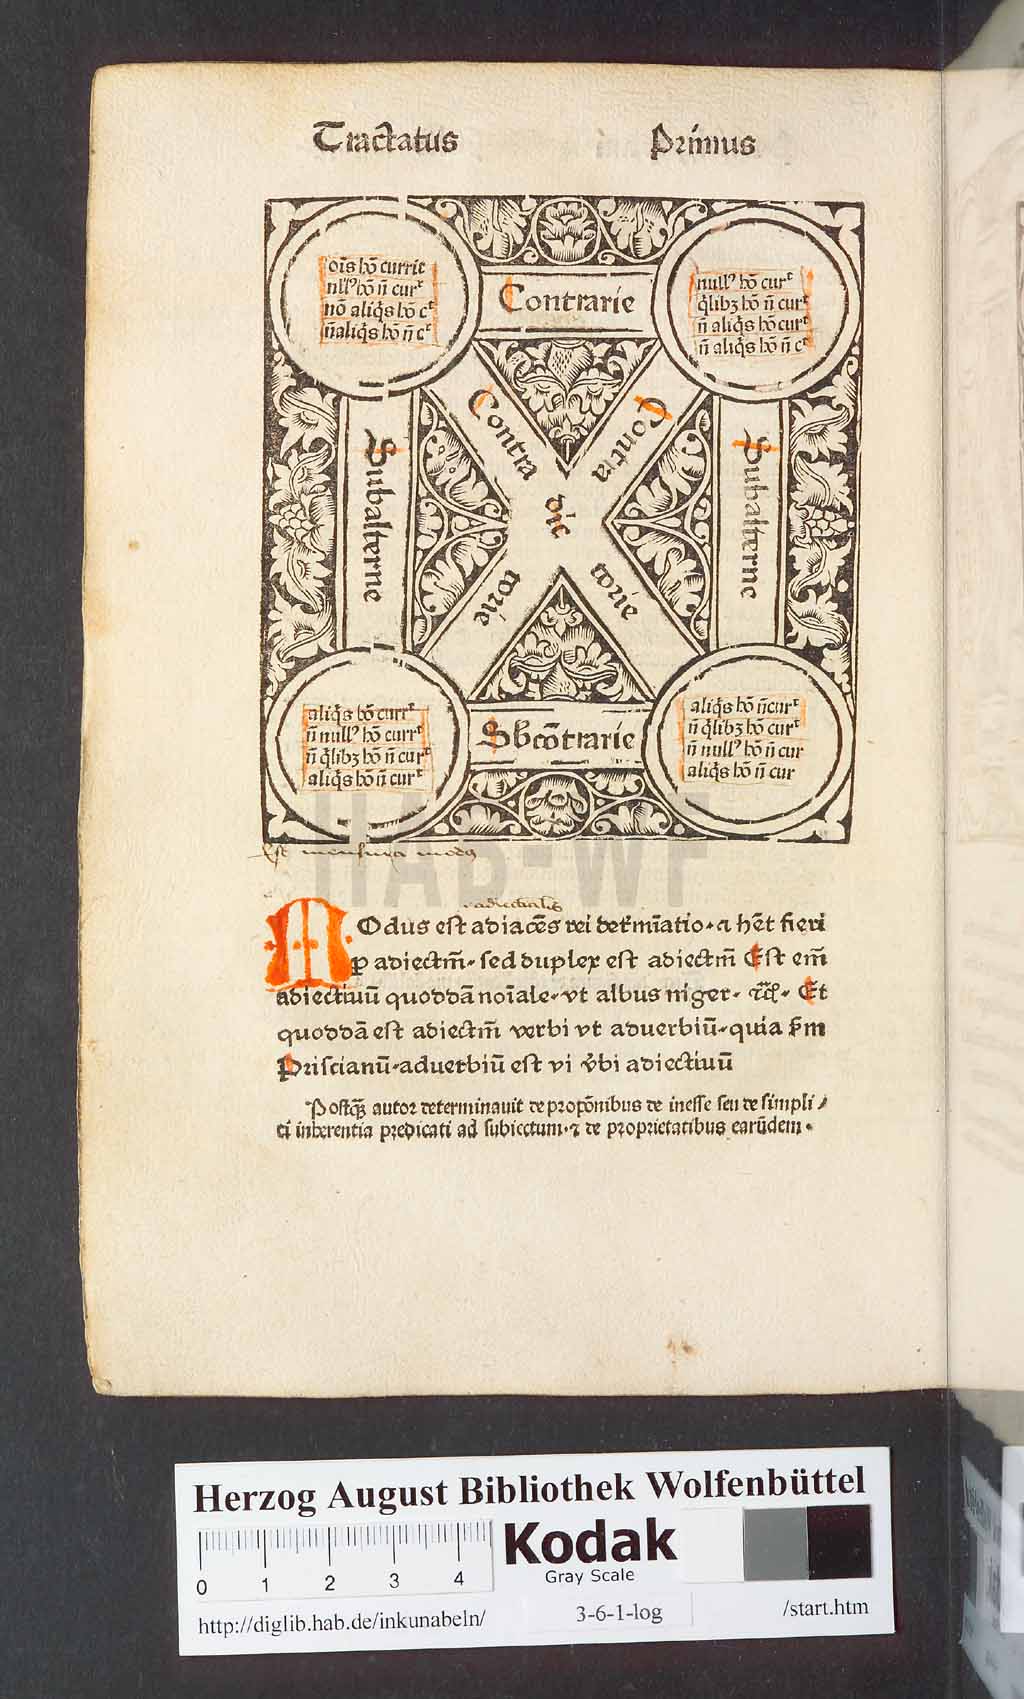 Tractatus Primus
oı̄s hō currit
nllꝰ hō n̄ curᵗ
nō aliq̄s hō cᵗ
n̄ aliq̄s hō n̄ cᵗ
Contrarie
nullꝰ hō curᵗ
q̄libꝫ hō n̄ curᵗ
n̄ aliq̄s hō curᵗ
n̄ aliq̄s hō n̄ cᵗ
Contra
Contra
dic
torie
torie
Subalterne
Subalterne
aliq̄s hō currᵗ
n̄ nullꝰ hō currᵗ
n̄ q̄libꝫ hō n̄ curᵗ
aliq̄s hō n̄ curᵗ
Sbcōtrarie
aliq̄s hō n̄ curᵗ
n̄ q̄libꝫ hō curᵗ
n̄ nullꝰ hō n̄ cur
aliq̄s hō n̄ cur
Est mensura modꝰ
MOdus est adiacēs rei det̄mīatio. ⁊ hēt fieri
ꝑ adiectm̄. sed duplex est adiectm̄ Est em̄
adiectiuū quoddā noīale. vt albus niger. ⁊c̄. Et
quoddā est adiectm̄ verbi vt aduerbiū. quia ẜm
Priscianū. aduerbiū est vi v̄bi adiectiuū
Postqꝫ autor determinauit de propōnibus de inesse seu de simpli/
ci inherentia predicati ad subiectum. ⁊ de proprietatibus earūdem.
HAB-WF
Herzog August Bibliothek Wolfenbüttel
0 1 2 3 4
Kodak
Gray Scale
http://diglib.hab.de/inkunabeln/ 3-6-1-log /start.htm